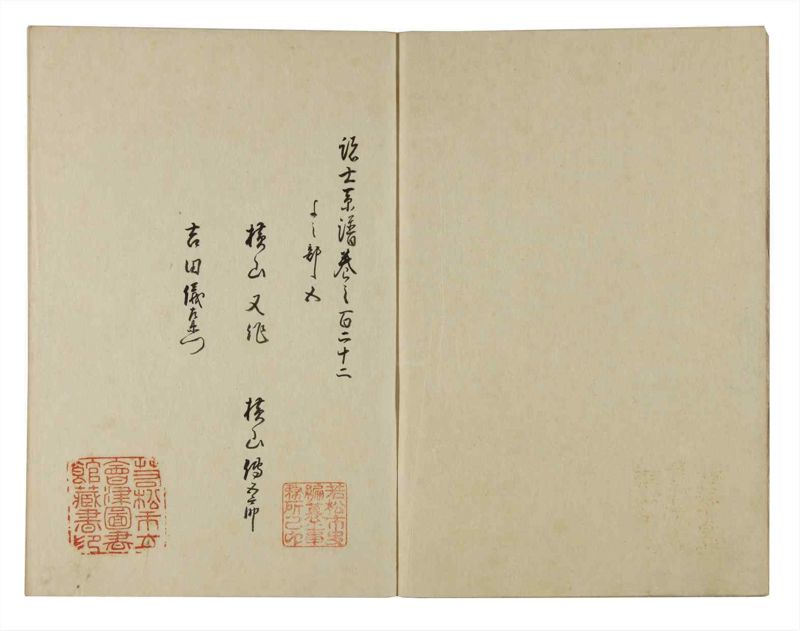 諸士系譜巻之百二十二
よ之部ノ五
横山又作
横山傳五郎
吉田儀左衛門
若松市史
編纂事
務所之印
若松市立
會津圖書
館蔵書印